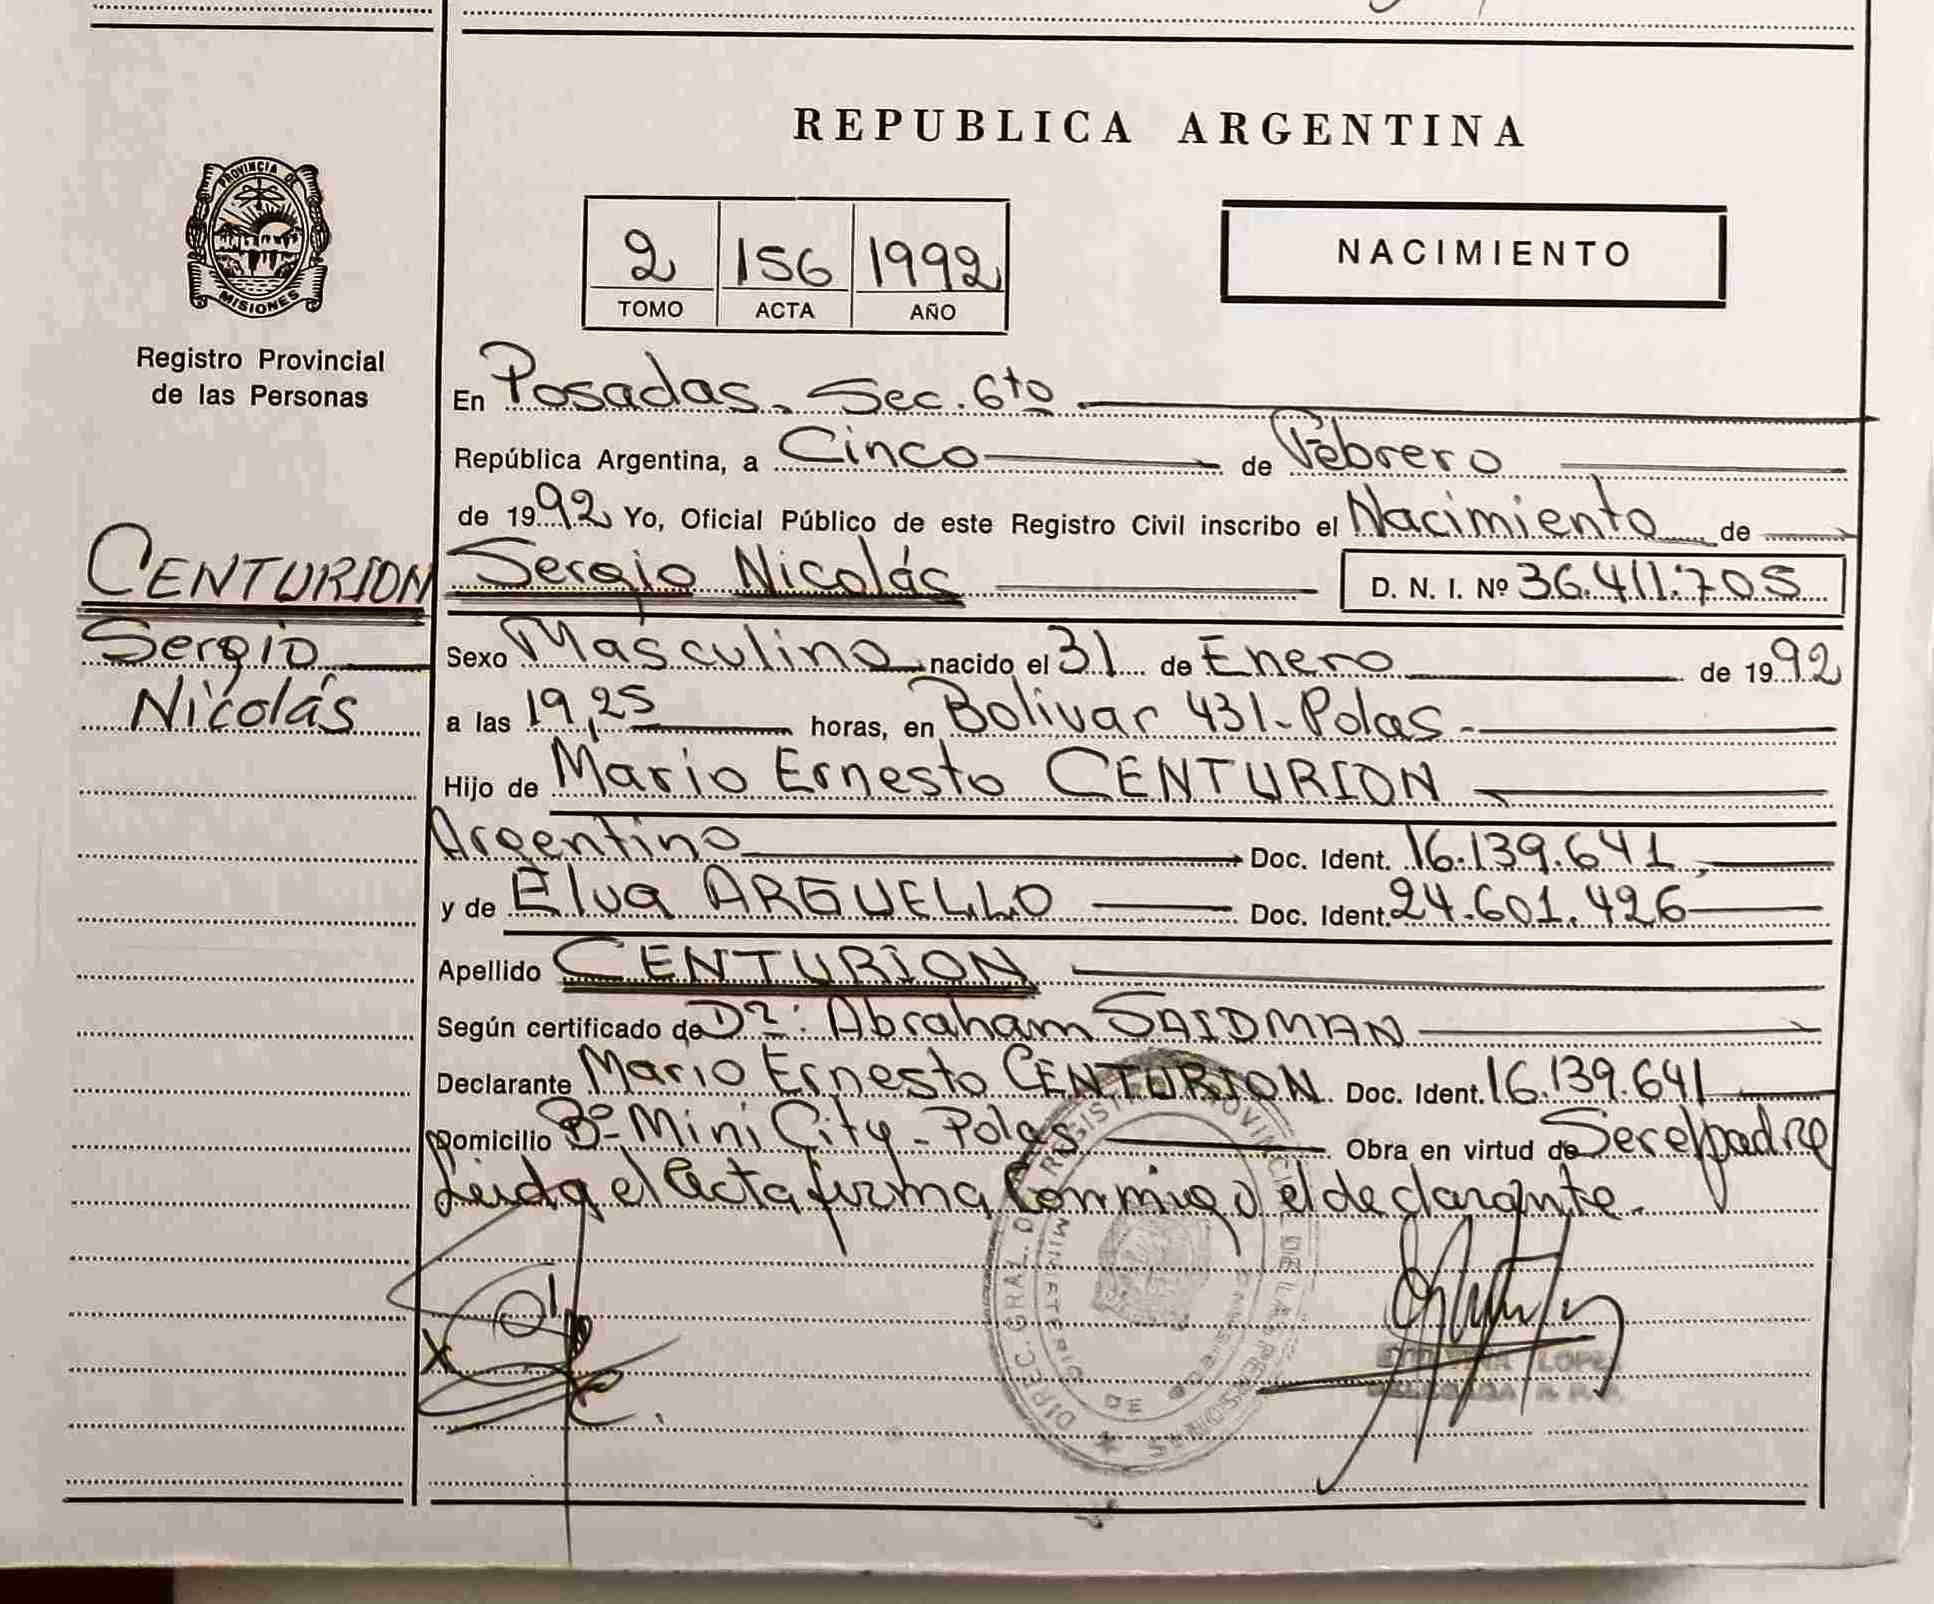 PROVINCIA DE
MISIONES
Registro Provincial
de las Personas
CENTURION
Sergio
Nicolás
REPUBLICA ARGENTINA
2 156 1992
TOMO ACTA AÑO
NACIMIENTO
En Posadas - Sec. 6to
República Argentina, a Cinco de Febrero
de 1992 Yo, Oficial Público de este Registro Civil inscribo el Nacimiento de
Sergio Nicolás D. N. I. Nº 36.411.705
Sexo Masculino nacido el 31 de Enero de 1992
a las 19,25 horas, en Bolivar 431 - Pdas -
Hijo de Mario Ernesto CENTURION
Argentino Doc. Ident. 16.139.641,
y de Elva ARGUELLO Doc. Ident. 24.601.426
Apellido CENTURION
Según certificado de Dr: Abraham SAIDMAN
Declarante Mario Ernesto CENTURION Doc. Ident. 16.139.641
Domicilio Bº Mini City - Pdas Obra en virtud de Ser el padre
Leida el Acta firma Conmigo el declarante.
DIREC. GRAL. D REGISTRO PROVINCIAL DE LAS PERSONAS
MINISTERIO DE GOBIERNO
LOPE